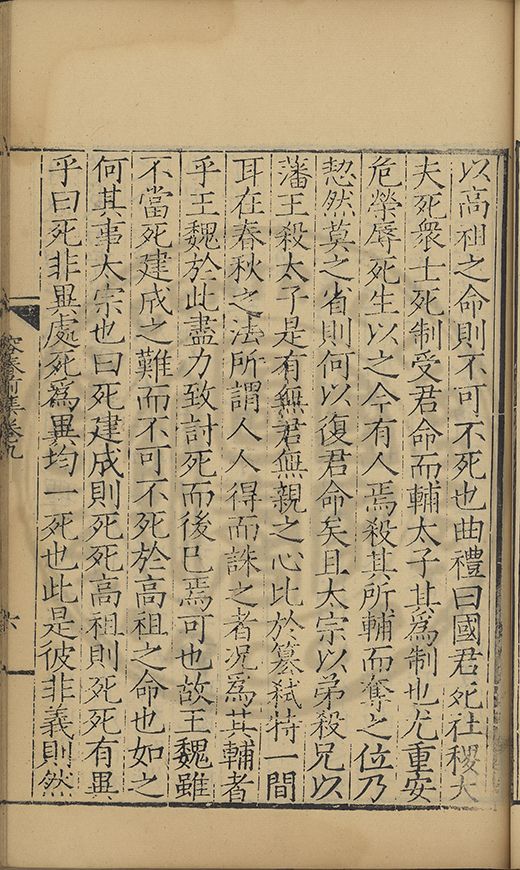 以高祖之命則不可不死也曲禮曰國君死社稷大
夫死衆士死制受君命而輔太子其為制也尤重安
危榮辱死生以之今有人焉殺其所輔而奪之位乃
恝然莫之省則何以復君命矣且太宗以弟殺兄以
藩王殺太子是有無君無親之心比於篡弑特一間
耳在春秋之法所謂人人得而誅之者况為其輔者
乎王魏於此盡力致討死而後已焉可也故王魏雖
不當死建成之難而不可不死於高祖之命也如之
何其事太宗也曰死建成則死死高祖則死死有異
乎曰死非異處死為異均一死也此是彼非義則然
前集卷九
六